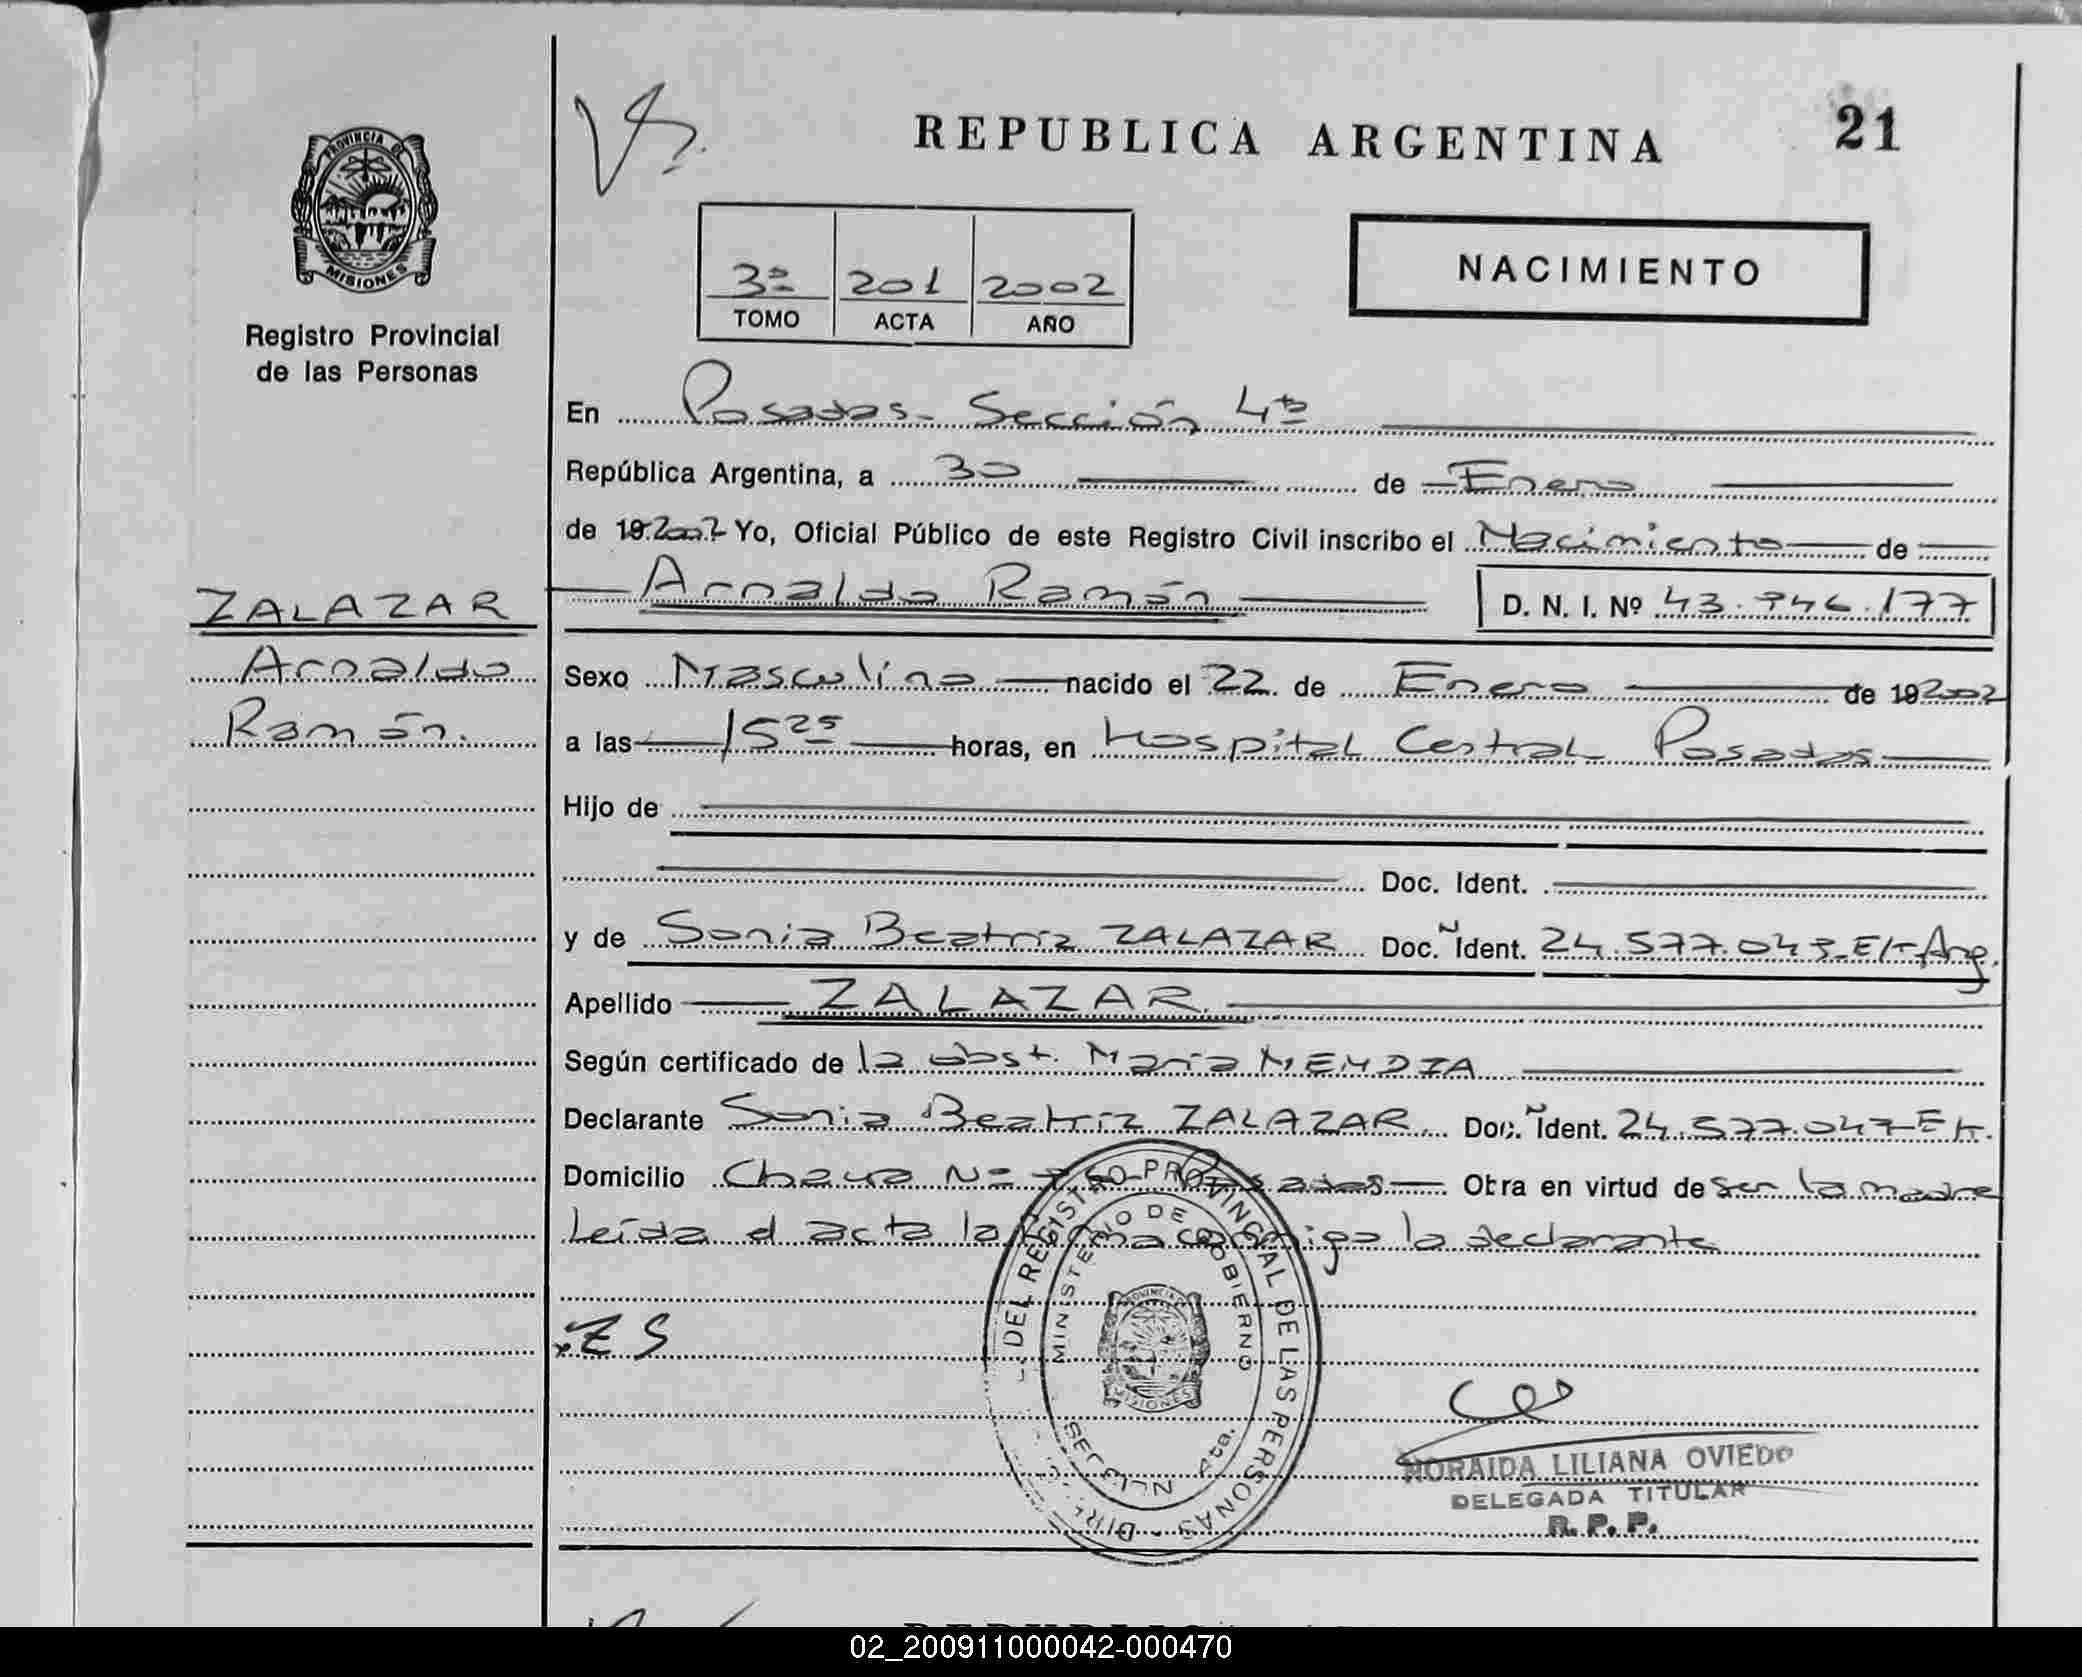 REPUBLICA ARGENTINA 21
PROVINCIA DE
MISIONES
Registro Provincial
de las Personas
3ª 201 2002
TOMO ACTA AÑO
NACIMIENTO
En Posadas - Sección 4ta
República Argentina, a 30 de Enero
de 19 2002 Yo, Oficial Público de este Registro Civil inscribo el Nacimiento de
Arnaldo Ramón D. N. I. Nº
ZALAZAR
Arnaldo
Ramón.
Sexo Masculino nacido el 22 de Enero de 19 2002
a las 15 25 horas, en Hospital Central Posadas
Hijo de
Doc. Ident.
y de Sonia Beatriz ZALAZAR Doc. Ident. Arg.
Apellido ZALAZAR
Según certificado de la obst. María MENDIA
Declarante Sonia Beatriz ZALAZAR Doc. Ident.
Domicilio Nº Posadas Obra en virtud de ser la madre
Leída el acta la firma conmigo la declarante
ZS
DEL REGISTRO PROVINCIAL DE LAS PERSONAS
MINISTERIO DE GOBIERNO
PROVINCIA
MISIONES
4ta.
NORAIDA LILIANA OVIEDO
DELEGADA TITULAR
R. P. P.
02_200911000042-000470